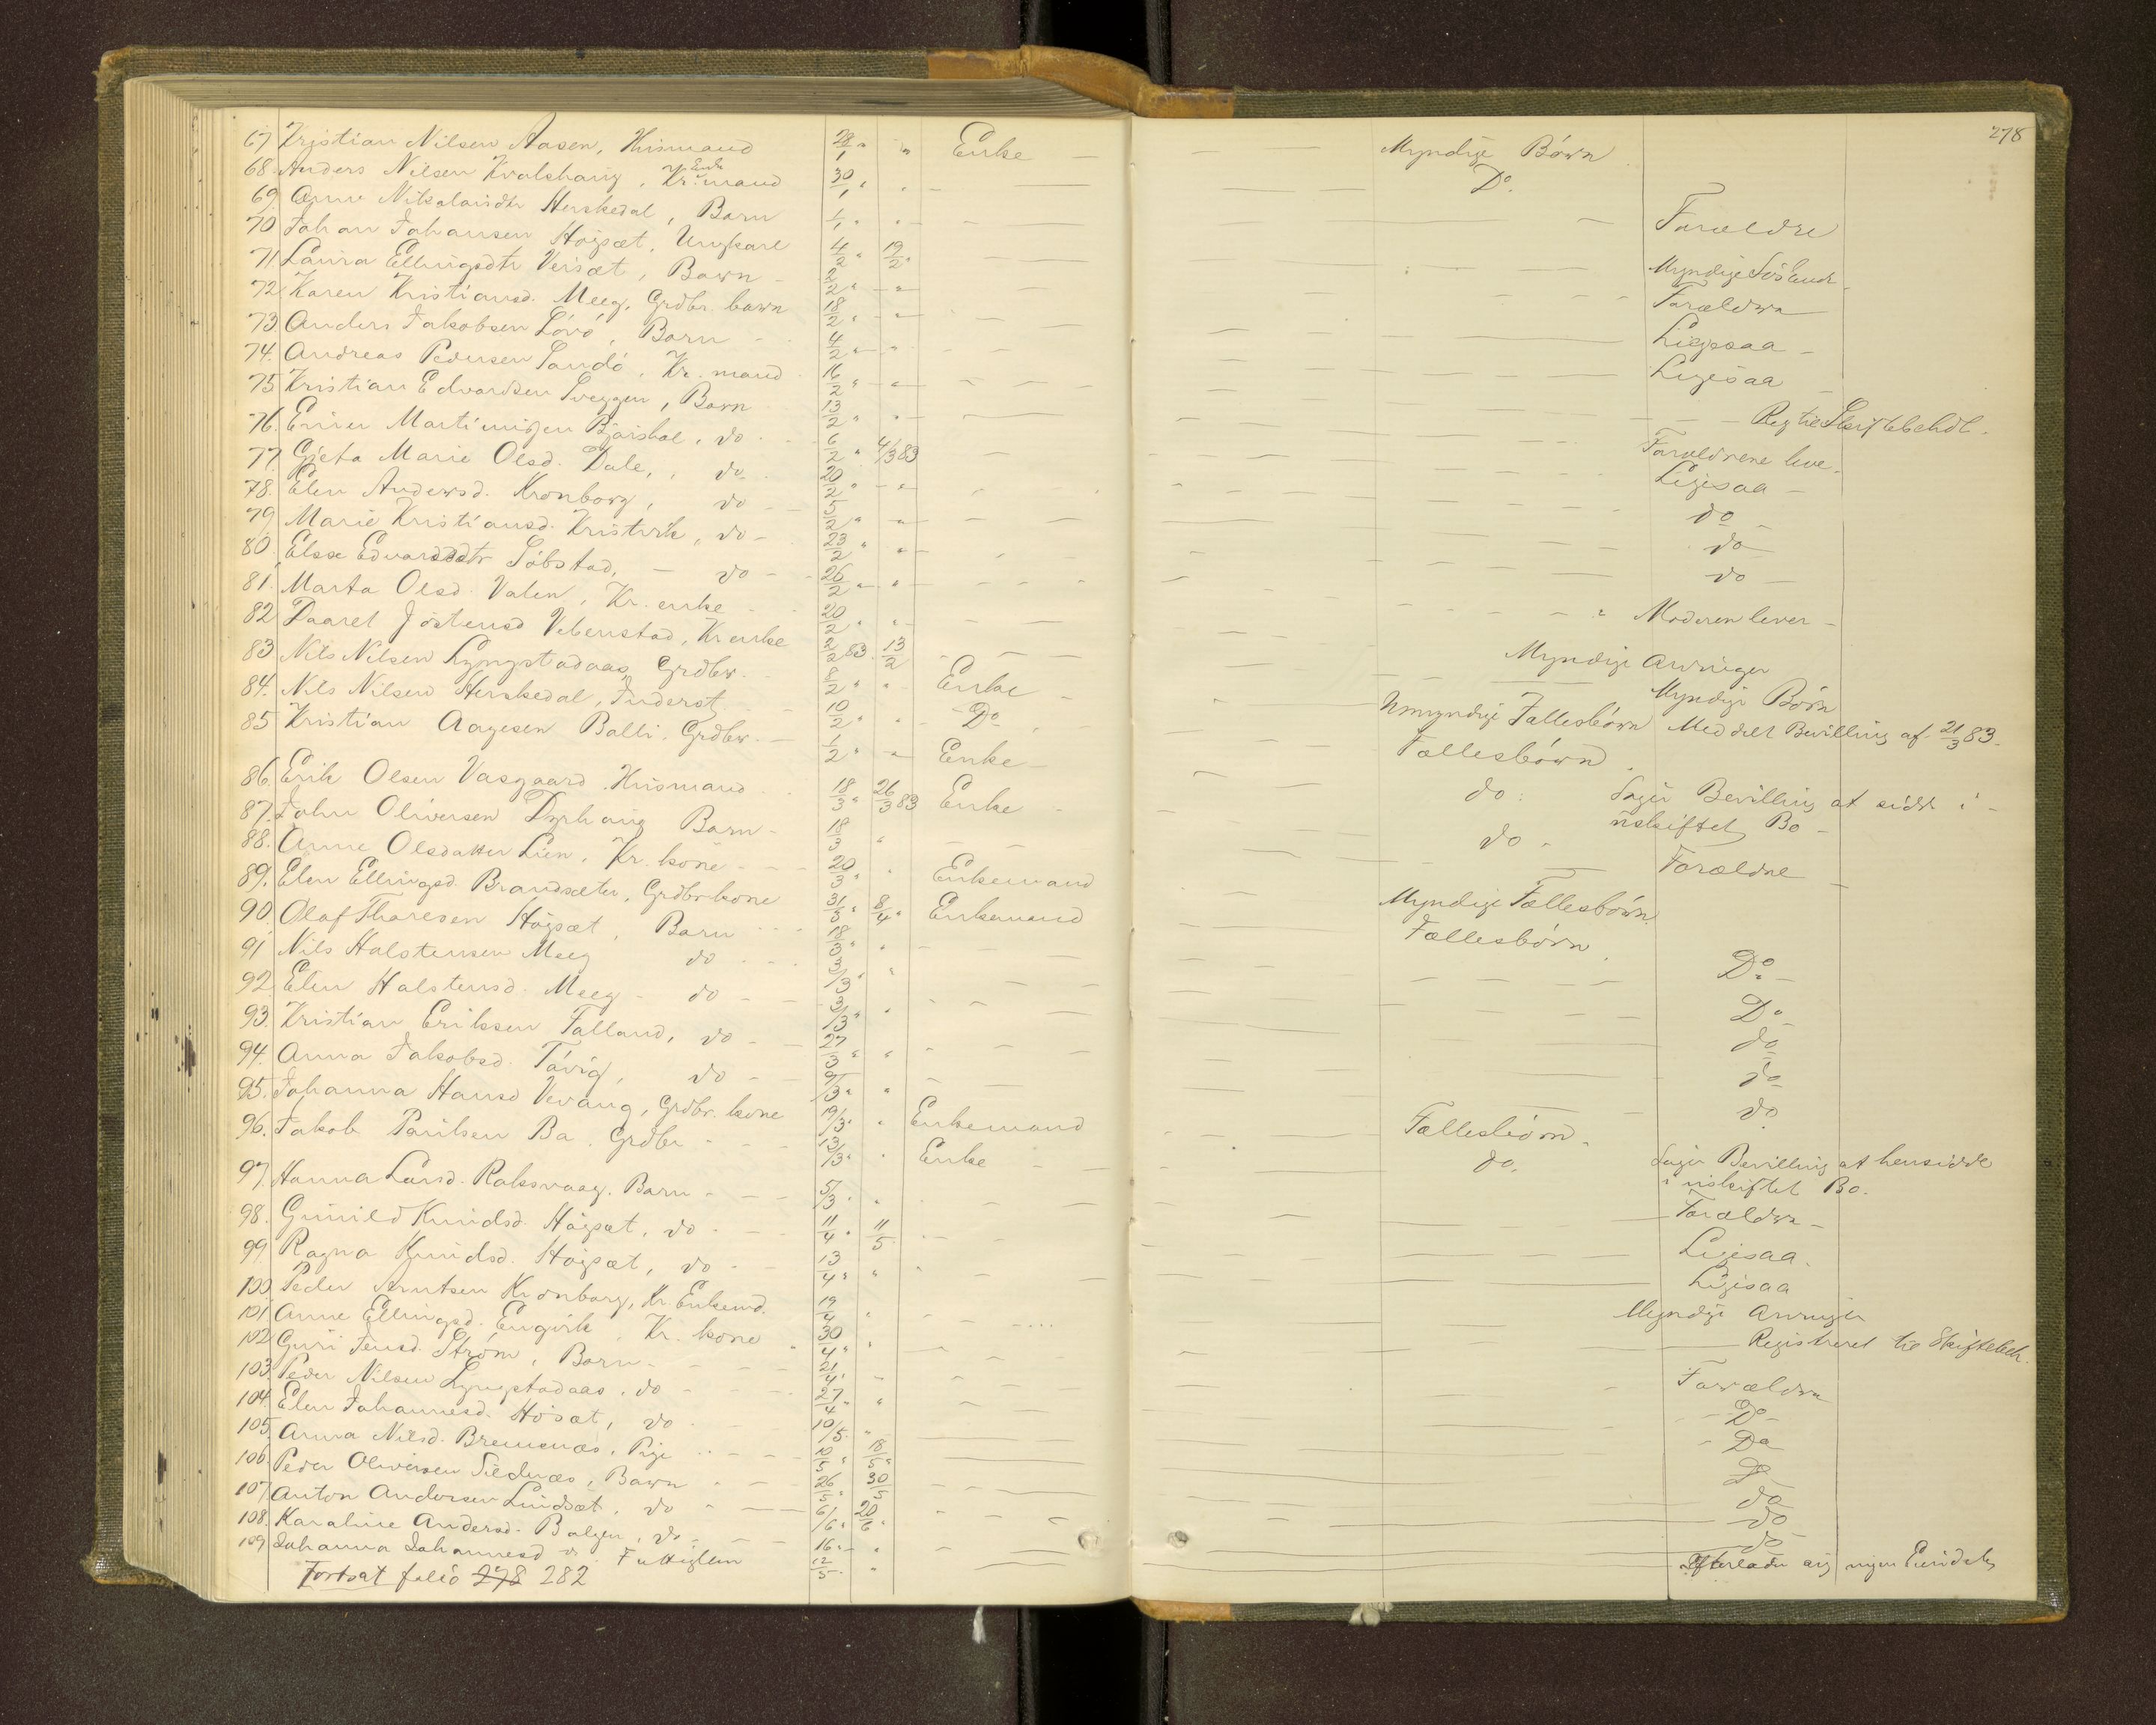 278
67 Kristian Nilsen Aasen, Husmand 28/1 " " Enke — Myndige Börn
68. Anders Nilsen Kvalshaug, Kr. Enkemand 30/1 " " — D°
69. Anne Nikolaisdtr Herskedal, Barn 1/1 " " — Forældre
70 Johan Johansen Högset, Ungkarl 4/2 " 19/2 " — Myndige Söskende
71. Laura Ellingsdtr Veisæt, Barn 2/2 " " — Forældre
72. Karen Kristiansd. Meeg, Grdbr. barn 18/2 " " — Ligesaa
73. Anders Jakobsen Lövö, Barn 4/2 " " — Ligesaa
74. Andreas Pedersen Sandö, Kr. mand 16/2 " " — Reg til Skiftebehdl.
75 Kristian Edvardsen Sveggen, Barn 13/2 " " — Forældrene leve.
76. Martinusen, do 6/2 " 4/3 83 — Ligesaa
77. Gjeta Marie Olsd. Dale, do 20/2 " " — do
78. Elen Andersd. Kronborg, do 5/2 " " — do
79. Marie Kristiansd. Kristvik, do 23/2 " " — do
80. Else Edvardsdtr Söbstad, — do 26/2 " " — Moderen lever
81. Marta Olsd. Valen, Kr. enke 20/2 " " — Myndige Arvinger
82. Jöstensd Vebenstad, Kr enke 2/2 83. 13/2 — Myndige Börn
83 Nils Nilsen Lyngstadaas, Grdbr. 8/2 " " Enke — Umyndige Fællesbörn Meddelt Bevilling af 21/3 83.
84. Nils Nilsen Herskedal, Inderst 10/2 " " D° — Fællesbörn
85 Kristian Aagesen Balli, Grdbr. 1/2 " " Enke — do. Söger Bevilling at sidde i
uskiftet Bo
86. Erik Olsen Vasgaard, Husmand 18/3 " 26/3 83 Enke — do
87. John Oliversen Dyrhaug Barn 18/3 " — Forældre
88. Anne Olsdatter Lien, Kr. kone 20/3 " " Enkemand Myndige Fællesbörn.
89. Elen Ellingsd. Brandsæter, Grdbr kone 31/3 " 8/4 " Enkemand Fællesbörn
90. Olaf Tharesen Högset, Barn 18/3 " " — D°
91 Nils Halstensen Meeg do 3/3 " " — D°
92. Elen Halstensd. Meeg do 3/3 " " — do
93. Kristian Eriksen Falland, do 27/3 " " — do
94. Anna Jakobsd. Tövig, do 9/3 " " — do
95. Johanna Hansd Vevang, Grdbr. kone 19/3 " " Enkemand Fællesbörn.
96. Jakob Paulsen Bö. Grdbr 13/3 " " Enke — do. Söger Bevilling at hensidde
i uskiftet Bo.
97. Hanna Larsd. Roksvaag. Barn 5/3 " " — Forældre
98. Gunild Knudsd. Högset, do 11/4 " 11/5 — Ligesaa
99. Ragna Knudsd. Högset, do 13/4 " " — Ligesaa
100. Peder Arntsen Kronborg, Kr. Enkemd. 19/4 " — Myndige Arvinger
101. Anne Ellingsd. Engvik, Kr. kone 30/4 " " — Registreret til Skiftebeh.
102. Guri Jensd. Ström, Barn 21/4 " — Forældre
103. Peder Nilsen Lyngstadaas, do 27/4 " " — D°
104. Elen Johannesd. Hösæt, do 10/5 " — Do
105. Anna Nilsd. Bremsnæs, Pige 10/5 " 18/5 " — D°
106. Peder Oliversen Sildnæs, Barn 26/5 " 30/5 — do
107. Anton Andersen Lindsæt, do 6/6 " 20/6 " — do
108. Karoline Andersd. Bolgen, do 16 " " — do
109 Johanna Johannesd Fattiglem 12/5 " Efterlader sig ingen Eiendele
Fortsat folio 278 282